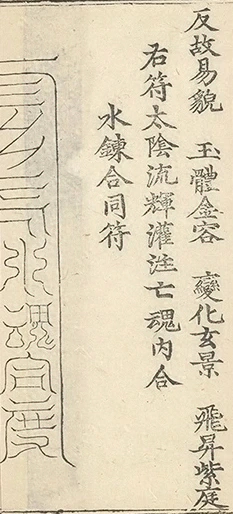 反故易貌 玉體金容 變化玄景 飛昇紫庭
右符太陰流輝灌注亡魂内合
水鍊合同符